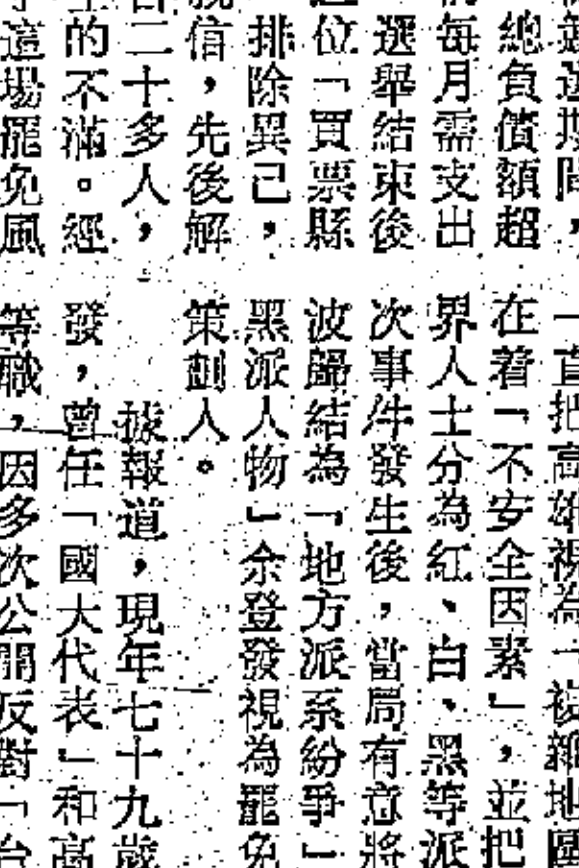 選期間，
總負債額超
每月需支出
選舉結束後
位「買票縣
排除異己，
信，先後解
二十多人，
的不滿。經
這場罷免風
一直把高雄視為「複雜地區
在着「不安全因素」，並把
界人士分為紅、白、黑等派
次事件發生後，當局有意將
波歸結為「地方派系紛爭」
黑派人物」余登發視為罷免
策劃人。
據報道，現年七十九歲
發，曾任「國大代表」和高
等職，因多次公開反對「台